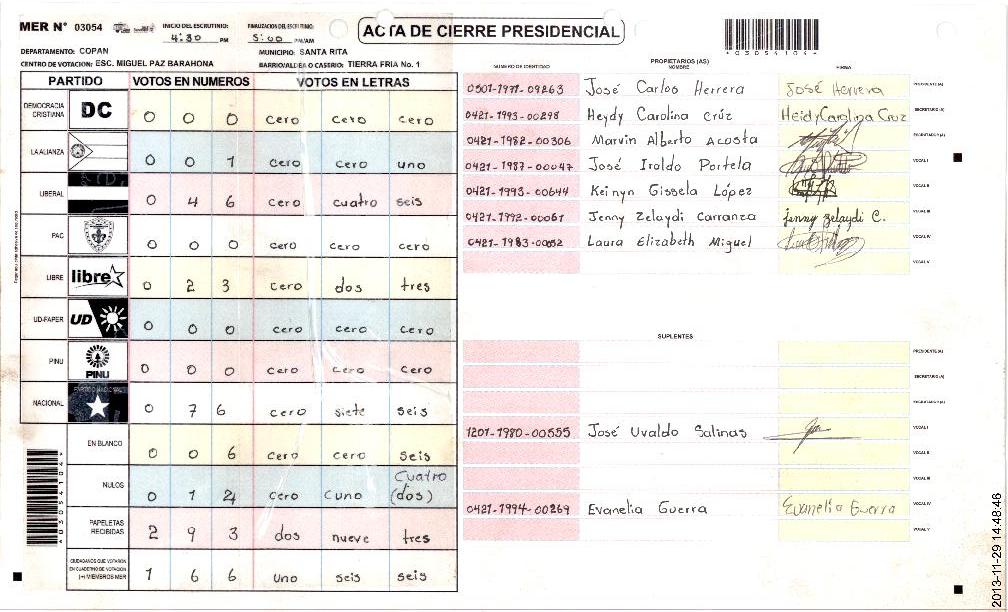 MER N° 03054
INICIO DEL ESCRUTINIO: 4:30 PM
FINALIZACION DEL ESCRUTINIO: 5:00 PM/AM
ACTA DE CIERRE PRESIDENCIAL
*03054104*
DEPARTAMENTO: COPAN
MUNICIPIO: SANTA RITA
CENTRO DE VOTACION: ESC. MIGUEL PAZ BARAHONA
BARRIO/ALDEA O CASERIO: TIERRA FRIA No. 1
PARTIDO VOTOS EN NUMEROS VOTOS EN LETRAS
DEMOCRACIA CRISTIANA DC 0 0 0 cero cero cero
LA ALIANZA 0 0 1 cero cero uno
LIBERAL 0 4 6 cero cuatro seis
PAC 0 0 0 cero cero cero
LIBRE libre 0 2 3 cero dos tres
UD-FAPER UD 0 0 0 cero cero cero
PINU PINU 0 0 0 cero cero cero
NACIONAL 0 7 6 cero siete seis
EN BLANCO 0 0 6 cero cero seis
NULOS 0 1 4 cero cuno Cuatro (dos)
PAPELETAS RECIBIDAS 2 9 3 dos nueve tres
CIUDADANOS QUE VOTARON EN CUADERNO DE VOTACION (+) MIEMBROS MER 1 6 6 uno seis seis
NUMERO DE IDENTIDAD PROPIETARIOS (AS) NOMBRE FIRMA
0501-1977-09263 José Carlos Herrera José Herrera PRESIDENTE (A)
0421-1993-00298 Heydy Carolina crúz Heidy Carolina Cruz SECRETARIO (A)
0421-1982-00306 Marvin Alberto Acosta ESCRUTADOR (A)
0421-1987-00047 José Iroldo Portela VOCAL I
0421-1993-00644 Keinyn Gissela López VOCAL II
0421-1992-00067 Jenny Zelaydi Carranza jenny zelaydi C. VOCAL III
0421-1983-00052 Laura Elizabeth Miguel VOCAL IV
VOCAL V
SUPLENTES
PRESIDENTE (A)
SECRETARIO (A)
ESCRUTADOR (A)
1201-1980-00555 José Uvaldo Salinas VOCAL I
VOCAL II
VOCAL III
0421-1994-00269 Evanelia Guerra Evanelia Guerra VOCAL IV
VOCAL V
*03054104*
2013-11-29 14:48:46